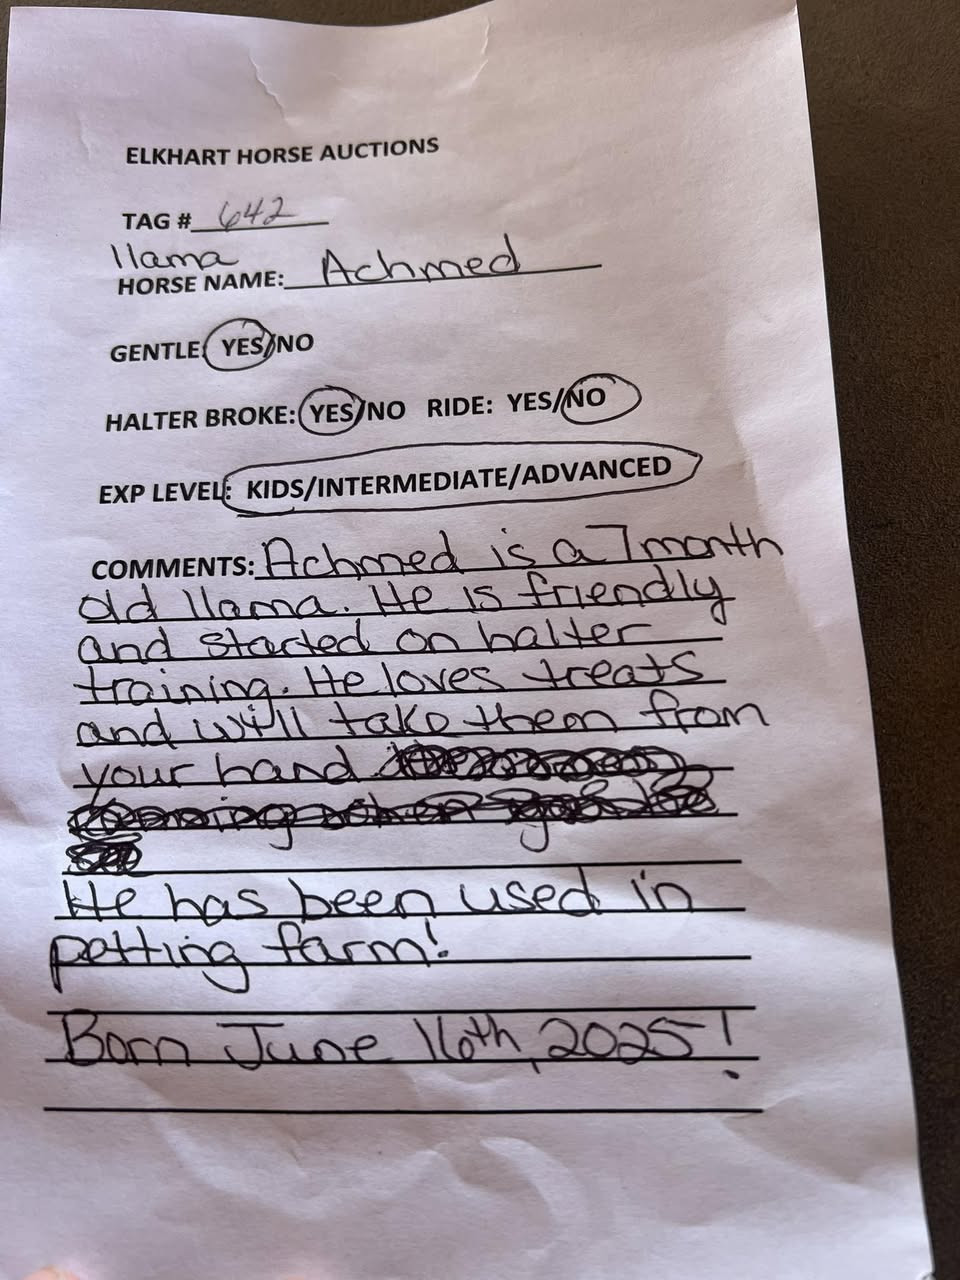 ELKHART HORSE AUCTIONS
TAG # 642
llama
HORSE NAME: Achmed
GENTLE: YES/NO
HALTER BROKE: YES/NO RIDE: YES/NO
EXP LEVEL: KIDS/INTERMEDIATE/ADVANCED
COMMENTS: Achmed is a 7 month
old llama. He is friendly
and started on halter
training. He loves treats
and will take them from
your hand
He has been used in
petting farm!
Born June 16th, 2025!